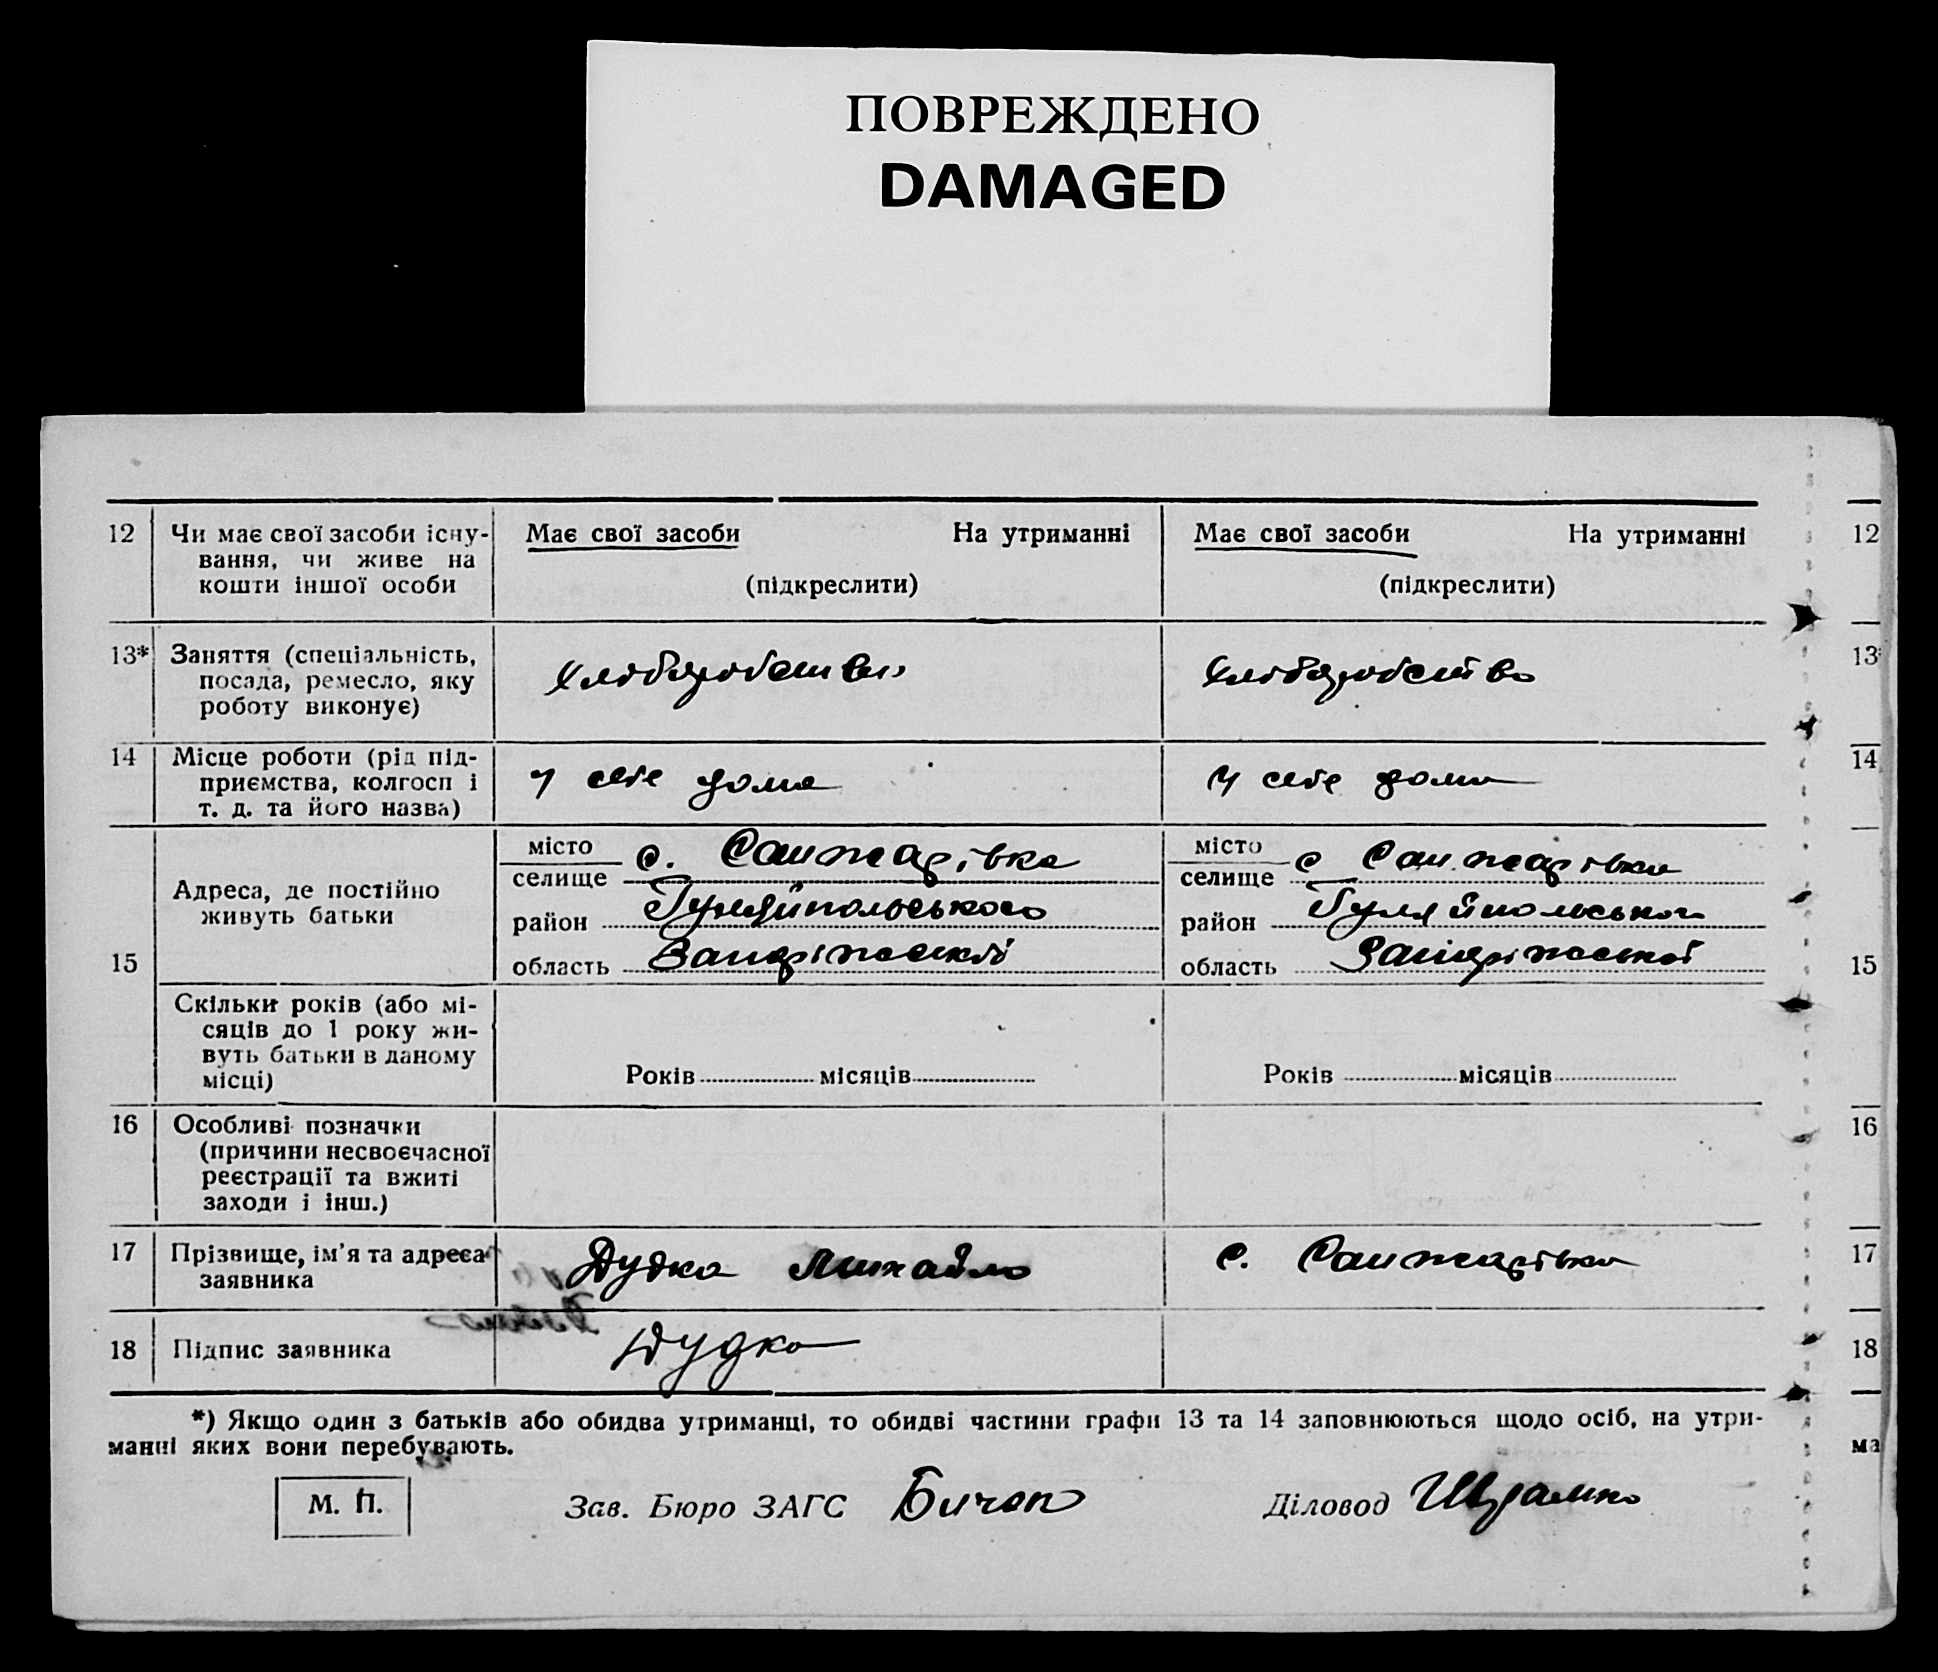 ПОВРЕЖДЕНО
DAMAGED
12 Чи має свої засоби існу- Має свої засоби На утриманні Має свої засоби На утриманні 12
вання, чи живе на
кошти іншої особи (підкреслити) (підкреслити)
13* Заняття (спеціальність, 13*
посада, ремесло, яку хлоборобство хлоборобство
роботу виконує)
14 Місце роботи (рід під- 14
приємства, колгосп і у себе дома у себе дома
т. д. та його назва)
місто с. Санжарівка місто с Санжарівка
Адреса, де постійно селище селище
живуть батьки район Гуляйпольського район Гуляйпольського
15 область Запоріжської область Запоріжської 15
Скільки років (або мі-
сяців до 1 року жи-
вуть батьки в даному
місці) Років місяців Років місяців
16 Особливі позначки 16
(причини несвоєчасної
реєстрації та вжиті
заходи і інш.)
17 Прізвище, ім'я та адреса Дудка Михайло с. Санжарівка 17
заявника
18 Підпис заявника Дудка 18
*) Якщо один з батьків або обидва утриманці, то обидві частини графи 13 та 14 заповнюються щодо осіб, на утри-
манні яких вони перебувають. ма
М. П. Зав. Бюро ЗАГС Діловод